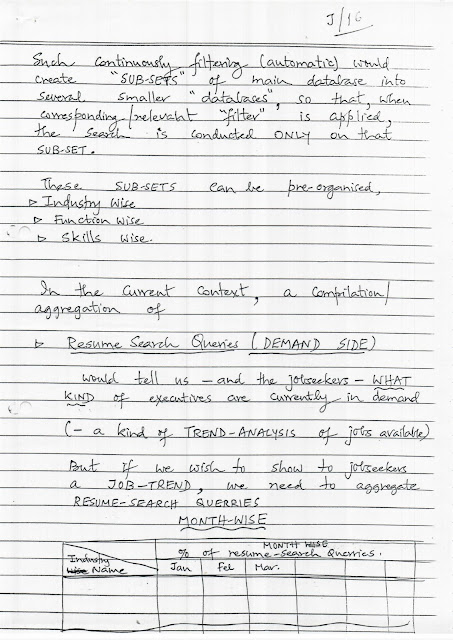 J/16
Such continuously filtering (automatic) would
create "SUB-SETS" of main database into
several smaller "databases", so that, when
corresponding/relevant "filter" is applied,
the search is conducted ONLY on that
SUB-SET.
These SUB-SETS can be pre-organised,
▷ Industry wise
▷ Function wise
▷ Skills wise.
In the current context, a compilation/
aggregation of
▷ Resume Search Queries (DEMAND SIDE)
would tell us - and the jobseekers - WHAT
KIND of executives are currently in demand
(- a kind of TREND-ANALYSIS of jobs available)
But if we wish to show to jobseekers
a JOB-TREND, we need to aggregate
RESUME-SEARCH QUERRIES
MONTH-WISE
MONTH WISE
Industry
wise Name
% of resume-search Querries.
Jan Feb Mar.